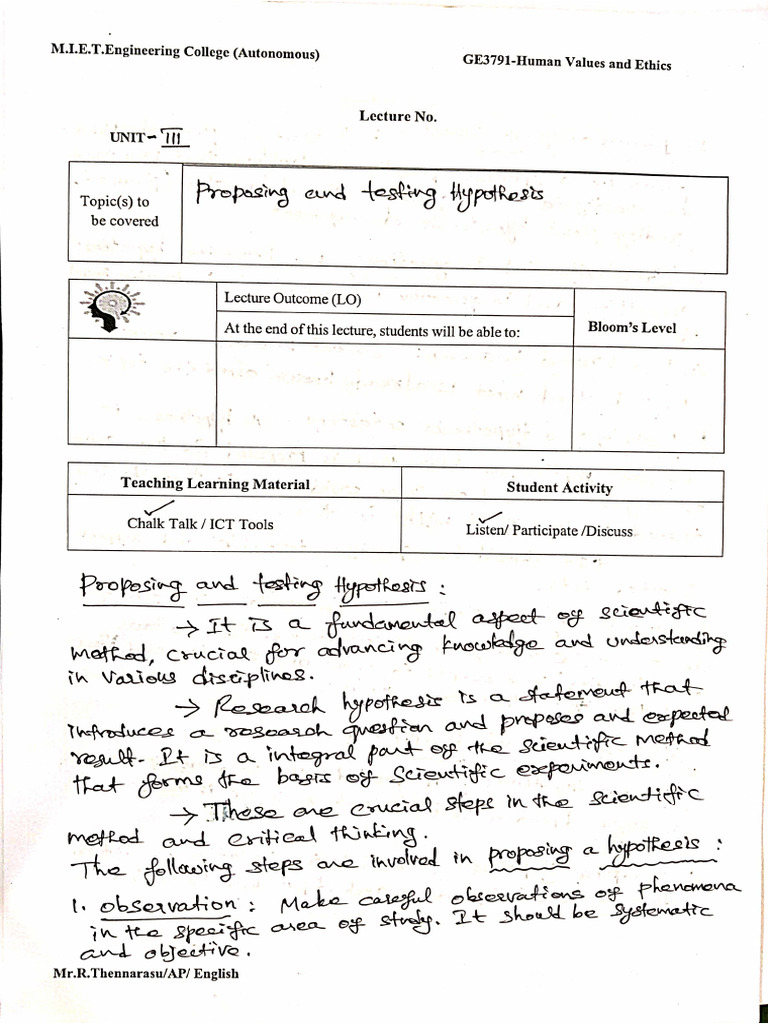 M.I.E.T.Engineering College (Autonomous)
GE3791-Human Values and Ethics
Lecture No.
UNIT-III
Topic(s) to
be covered
Proposing and testing Hypothesis
Lecture Outcome (LO)
At the end of this lecture, students will be able to:
Bloom's Level
Teaching Learning Material
Student Activity
Chalk Talk / ICT Tools
Listen/ Participate /Discuss
Proposing and testing Hypothesis :
→ It is a fundamental aspect of scientific
method, crucial for advancing knowledge and understanding
in various disciplines.
→ Research hypothesis is a statement that
introduces a research question and proposes and expected
result. It is a integral part of the scientific method
that forms the basis of scientific experiments.
→ These are crucial steps in the scientific
method and critical thinking.
The following steps are involved in proposing a hypothesis :
1. observation : Make careful observations of phenomena
in the specific area of study. It should be systematic
and objective.
Mr.R.Thennarasu/AP/ English